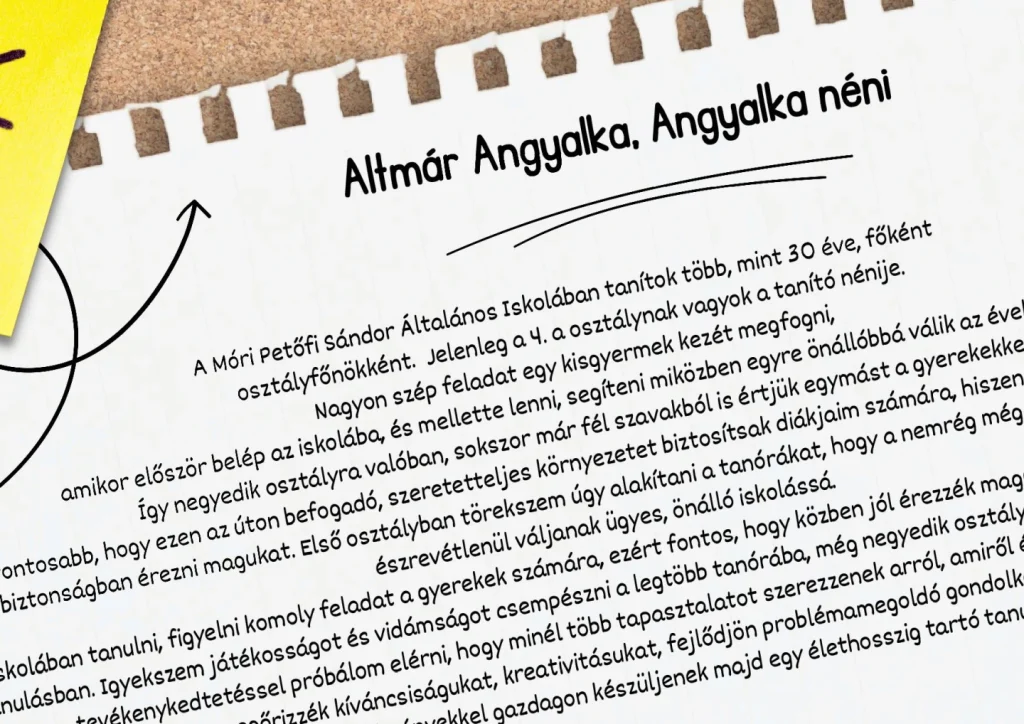 Altmár Angyalka, Angyalka néni
A Móri Petőfi Sándor Általános Iskolában tanítok több, mint 30 éve, főként
osztályfőnökként. Jelenleg a 4. a osztálynak vagyok a tanító nénije.
Nagyon szép feladat egy kisgyermek kezét megfogni,
amikor először belép az iskolába, és mellette lenni, segíteni miközben egyre önállóbbá válik az
Így negyedik osztályra valóban, sokszor már fél szavakból is értjük egymást a
hogy ezen az úton befogadó, szeretetteljes környezetet biztosítsak diákjaim számára, hiszen
biztonságban érezni magukat. Első osztályban törekszem úgy alakítani a tanórákat, hogy a nemrég még
észrevétlenül váljanak ügyes, önálló iskolássá.
tanulni, figyelni komoly feladat a gyerekek számára, ezért fontos, hogy közben jól érezzék
Igyekszem játékosságot és vidámságot csempészni a legtöbb tanórába, még negyedik
tevékenykedtetéssel próbálom elérni, hogy minél több tapasztalatot szerezzenek arról, amiről
kíváncsiságukat, kreativitásukat, fejlődjön problémamegoldó
gazdagon készüljenek majd egy élethosszig tartó